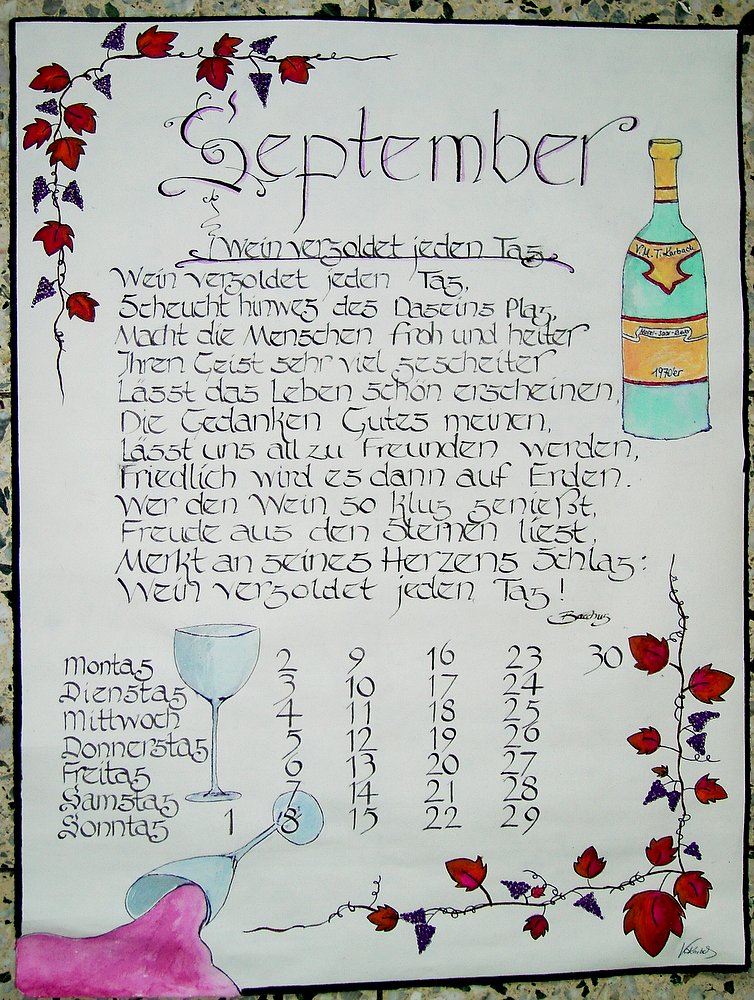 September
Wein vergoldet jeden Tag
Wein vergoldet jeden Tag,
Scheucht hinweg des Daseins Plag,
Macht die Menschen froh und heiter
Ihren Geist sehr viel gescheiter
Lässt das Leben schön erscheinen,
Die Gedanken Gutes meinen,
Lässt uns all zu Freunden werden,
Friedlich wird es dann auf Erden.
Wer den Wein so klug genießt,
Freude aus den Sternen liest,
Merkt an seines Herzens Schlag:
Wein vergoldet jeden Tag!
Bacchus
V.H.T. Karbach
Mosel-Saar-Ruwer
1970'er
Montag 2 9 16 23 30
Dienstag 3 10 17 24
Mittwoch 4 11 18 25
Donnerstag 5 12 19 26
Freitag 6 13 20 27
Samstag 7 14 21 28
Sonntag 1 8 15 22 29